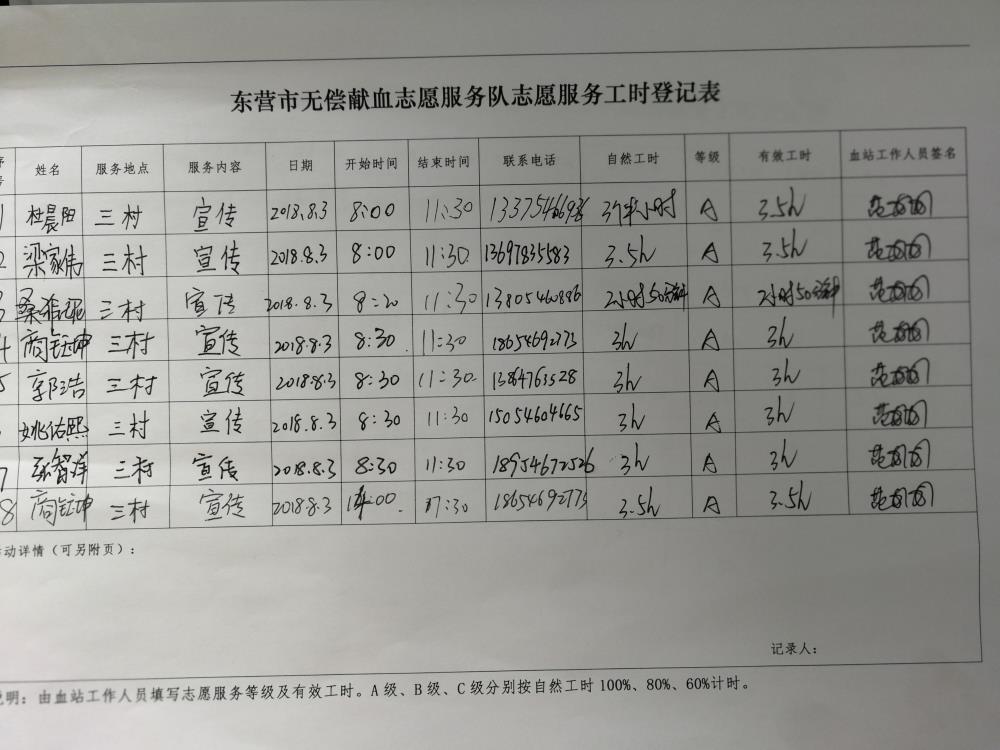 东营市无偿献血志愿服务队志愿服务工时登记表
号 姓名 服务地点 服务内容 日期 开始时间 结束时间 联系电话 自然工时 等级 有效工时 血站工作人员签名
1 杜晨阳 三村 宣传 2018.8.3 8:00 11:30 A 3.5h
2 梁家伟 三村 宣传 2018.8.3 8:00 11:30 13697835583 3.5h A 3.5h
3 三村 宣传 2018.8.3 8:20 11:30 13805460886 2小时50分钟 A 2小时50分钟
4 商钰坤 三村 宣传 2018.8.3 8:30 11:30 18654692773 3h A 3h
5 郭浩 三村 宣传 2018.8.3 8:30 11:30 3h A 3h
姚佑熙 三村 宣传 2018.8.3 8:30 11:30 15054604665 3h A 3h
7 张智洋 三村 宣传 2018.8.3 8:30 11:30 18954672526 3h A 3h
8 商钰坤 三村 宣传 2018.8.3 14:00 17:30 18654692773 3.5h A 3.5h
动详情（可另附页）：
记录人：
说明：由血站工作人员填写志愿服务等级及有效工时。A级、B级、C级分别按自然工时100%、80%、60%计时。